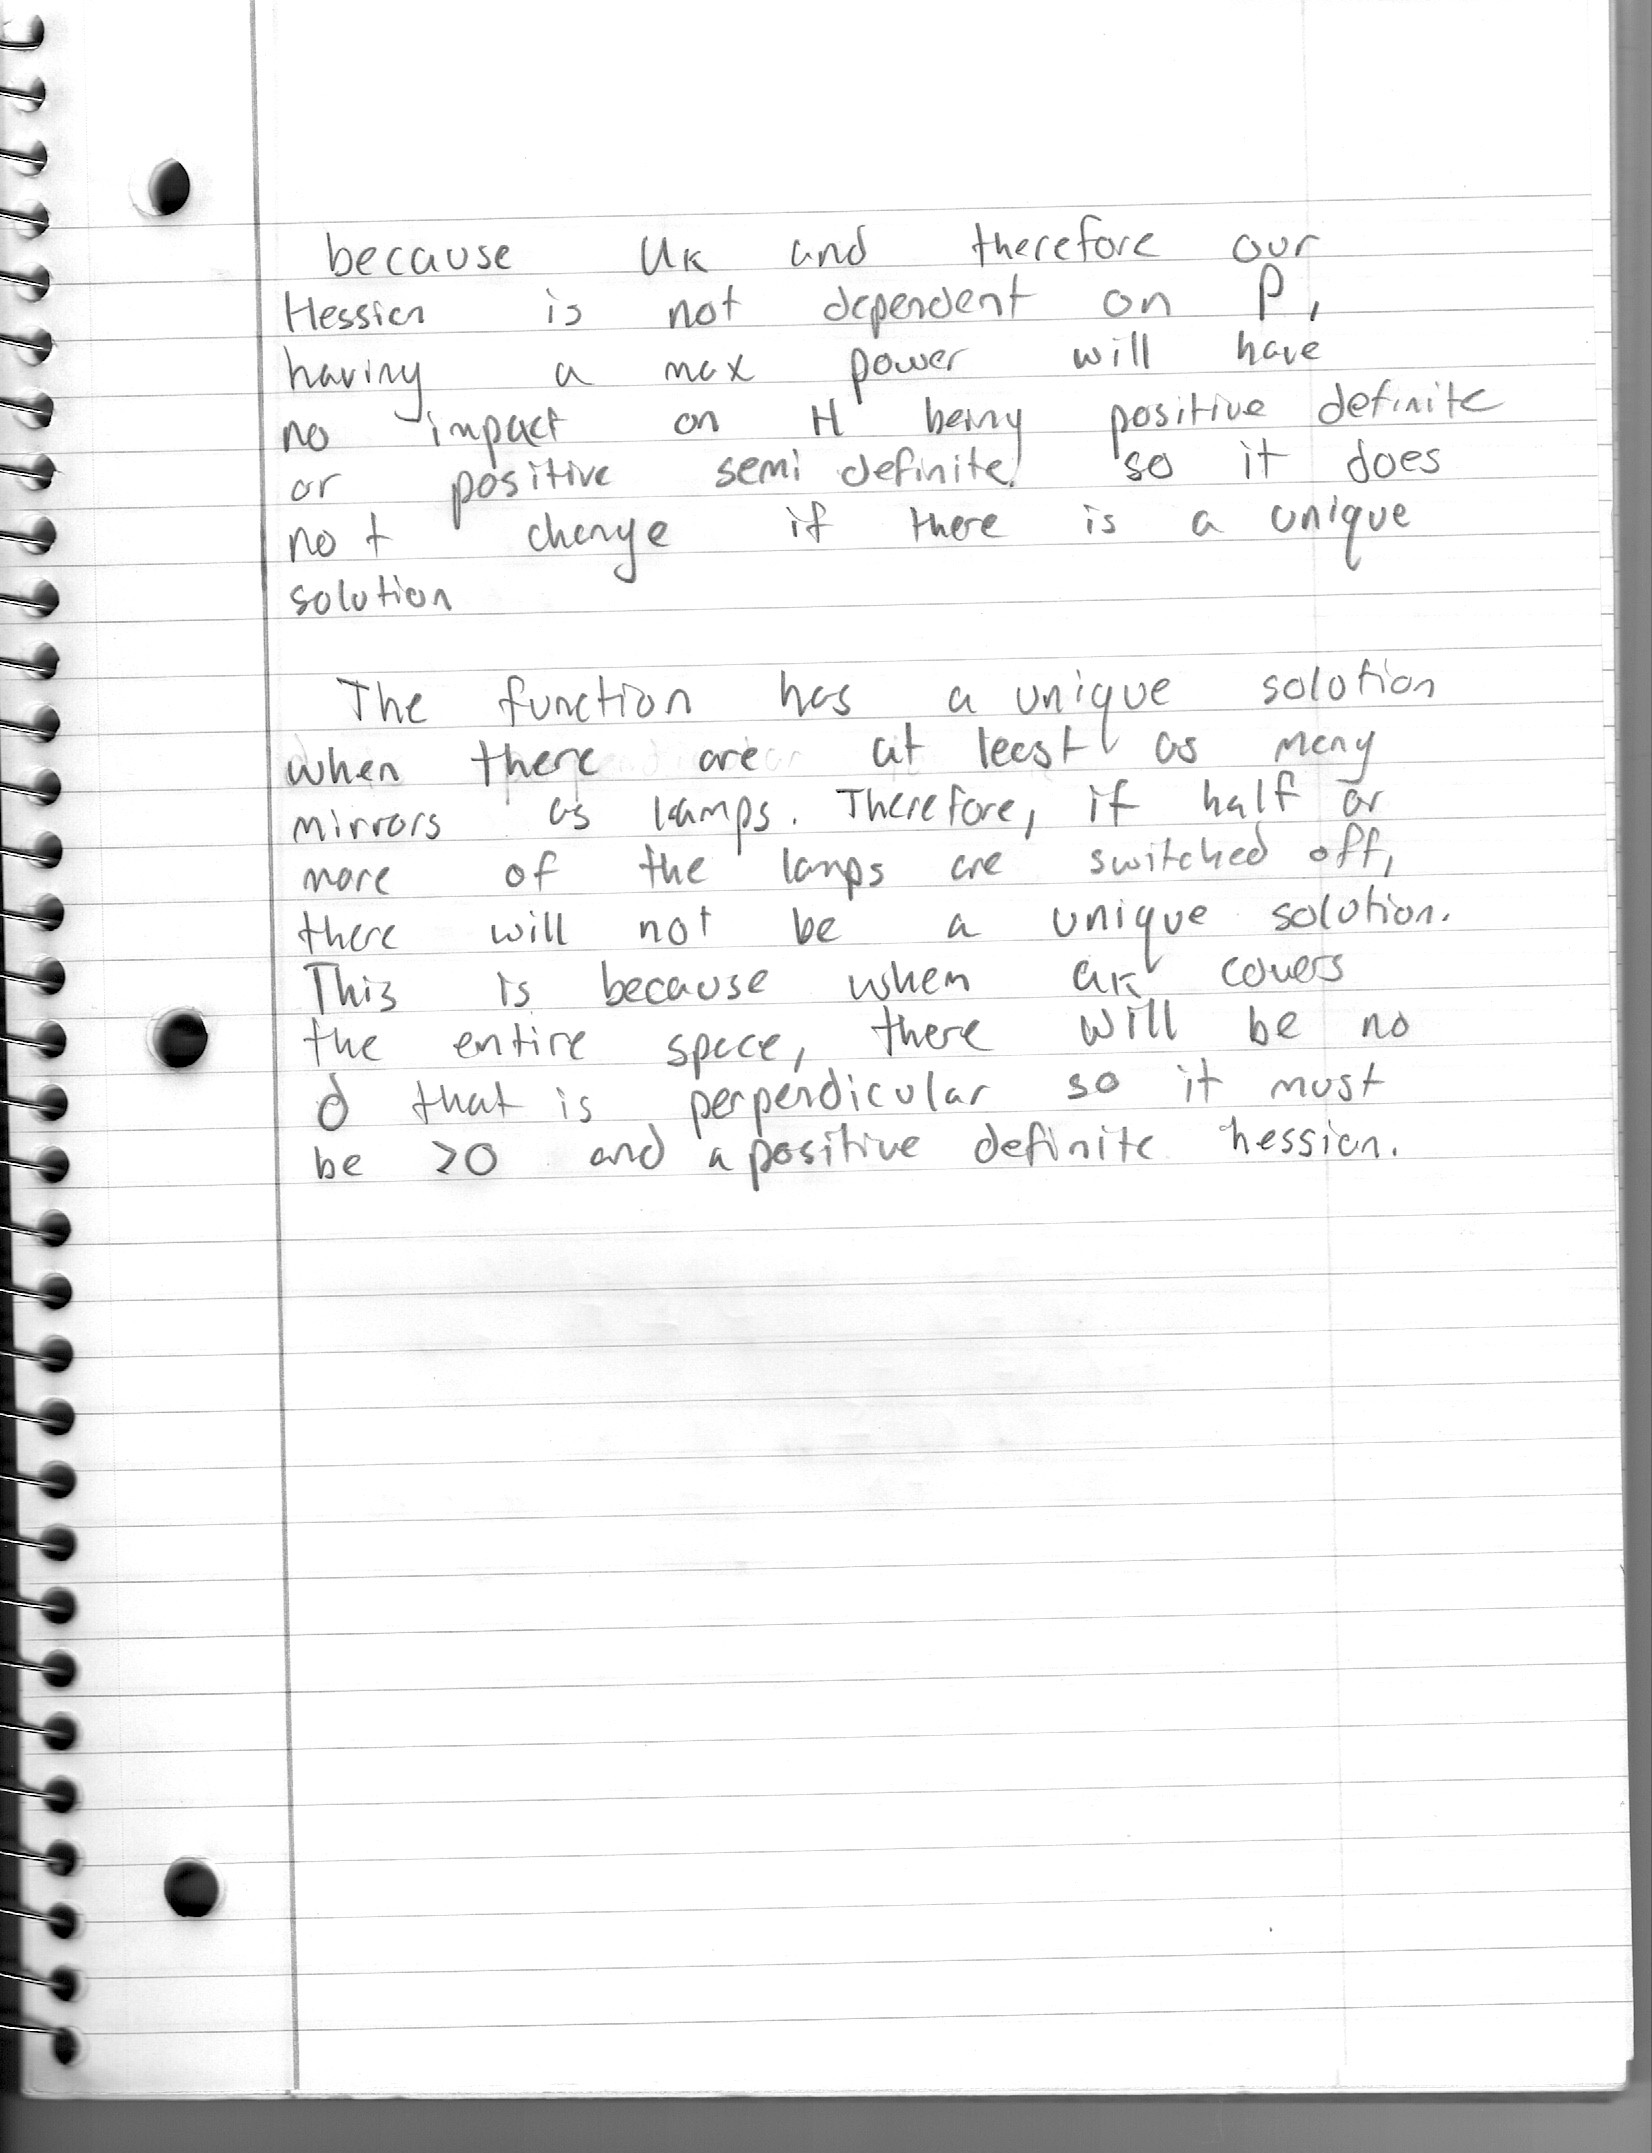 because uk and therefore our
Hessian is not dependent on P,
having a max power will have
no impact on H being positive definite
or positive semi definite so it does
not change if there is a unique
solution
The function has a unique solution
when there are at least as many
mirrors as lamps. Therefore, if half or
more of the lamps are switched off,
there will not be a unique solution.
This is because when ak covers
the entire space, there will be no
d that is perpendicular so it must
be >0 and a positive definite hessian.